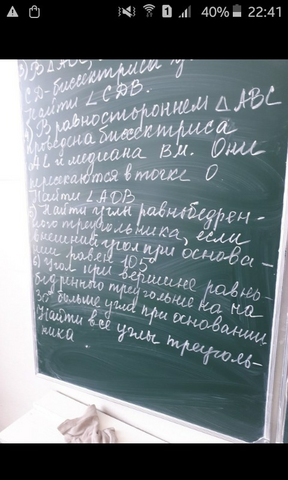 40% 22:41
В △ABC,
CD-биссектриса
Найти ∠CDB.
В равностороннем △ABC
проведена биссектриса
AL и медиана BM. Они
пересекаются в точке O
Найти ∠AOB
Найти углы равнобедрен-
ного треугольника, если
внешний угол при основа-
нии равен 105°
6) угол при вершине равно-
бедренного треугольника на
30° больше угла при основании
Найти все углы треуголь-
ника